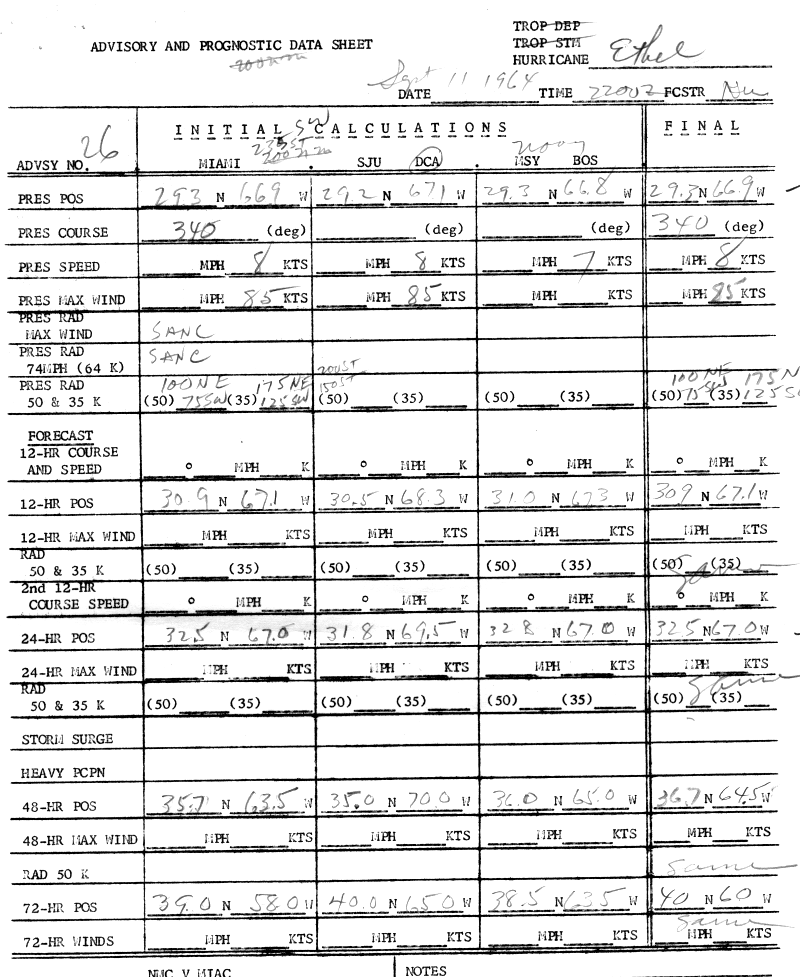 TROP DEP
ADVISORY AND PROGNOSTIC DATA SHEET TROP STM
HURRICANE Ethel
DATE Sept 11 1964 TIME 2200Z FCSTR
INITIAL CALCULATIONS FINAL
ADVSY NO. 26 MIAMI SJU DCA MSY BOS
PRES POS 29.3 N 66.9 W 29.2 N 67.1 W 29.3 N 66.8 W 29.3 N 66.9 W
PRES COURSE 340 (deg) (deg) (deg) 340 (deg)
PRES SPEED MPH 8 KTS MPH 8 KTS MPH 7 KTS MPH 8 KTS
PRES MAX WIND MPH 85 KTS MPH 85 KTS MPH KTS MPH 85 KTS
PRES RAD
MAX WIND SANC
PRES RAD SANC
74MPH (64 K) 200ST
PRES RAD 100NE 175NE 150ST 100NE 175N
50 & 35 K (50) 75SW (35) 125SW (50) (35) (50) (35) (50) 75SW (35) 125S
FORECAST
12-HR COURSE
AND SPEED ° MPH K ° MPH K ° MPH K ° MPH K
12-HR POS 30.9 N 67.1 W 30.5 N 68.3 W 31.0 N 67.3 W 30.9 N 67.1 W
12-HR MAX WIND MPH KTS MPH KTS MPH KTS MPH KTS
RAD
50 & 35 K (50) (35) (50) (35) (50) (35) (50) (35) same
2nd 12-HR
COURSE SPEED ° MPH K ° MPH K ° MPH K ° MPH K
24-HR POS 32.5 N 67.0 W 31.8 N 69.5 W 32.8 N 67.0 W 32.5 N 67.0 W
24-HR MAX WIND MPH KTS MPH KTS MPH KTS MPH KTS
RAD
50 & 35 K (50) (35) (50) (35) (50) (35) (50) same (35)
STORM SURGE
HEAVY PCPN
48-HR POS 35.7 N 63.5 W 35.0 N 70.0 W 36.0 N 65.0 W 36.7 N 64.5 W
48-HR MAX WIND MPH KTS MPH KTS MPH KTS MPH KTS
RAD 50 K same
72-HR POS 39.0 N 58.0 W 40.0 N 65.0 W 38.5 N 63.5 W 40 N 60 W
same
72-HR WINDS MPH KTS MPH KTS MPH KTS MPH KTS
NMC V MIAC NOTES